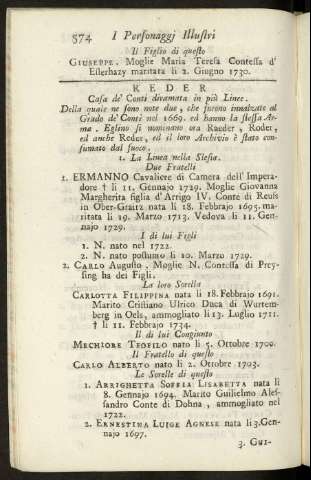 374 I Personaggi Illustri
Il Figlio di questo
GIUSEPPE. Moglie Maria Teresa Contessa d'
Esterhazy maritata li 2. Giugno 1730.
KEDER
Casa de' Conti diramata in più Linee.
Della quale ne sono note due, che furono innalzate al
Grado de' Conti nel 1669. ed hanno la stessa Ar-
ma. Eglino si nominano ora Raeder, Roder,
ed anche Reder, ed il loro Archivio è stato con-
sumato dal fuoco.
1. La Linea nella Slesia.
Due Fratelli
1. ERMANNO Cavaliere di Camera dell' Impera-
dore † li 11. Gennajo 1729. Moglie Giovanna
Margherita figlia d' Arrigo IV. Conte di Reuss
in Ober-Graitz nata li 18. Febbrajo 1695. ma-
ritata li 19. Marzo 1713. Vedova li 11. Gen-
najo 1729.
I di lui Figli
1. N. nato nel 1722.
2. N. nato postumo li 10. Marzo 1729.
2. CARLO Augusto. Moglie N. Contessa di Prey-
sing ha dei Figli.
La loro Sorella
CARLOTTA FILIPPINA nata li 18. Febbrajo 1691.
Marito Cristiano Ulrico Duca di Wurtem-
berg in Oels, ammogliato li 13. Luglio 1711.
† li 11. Febbrajo 1734.
Il di lui Congiunto
MECHIORE TEOFILO nato li 5. Ottobre 1700.
Il Fratello di questo
CARLO ALBERTO nato li 2. Ottobre 1703.
Le Sorelle di questo
1. ARRIGHETTA SOFFIA LISABETTA nata li
8. Gennajo 1694. Marito Guilielmo Ales-
sandro Conte di Dohna, ammogliato nel
1722.
2. ERNESTINA LUIGE AGNESE nata li 3. Gen-
najo 1697.
3. GUI-